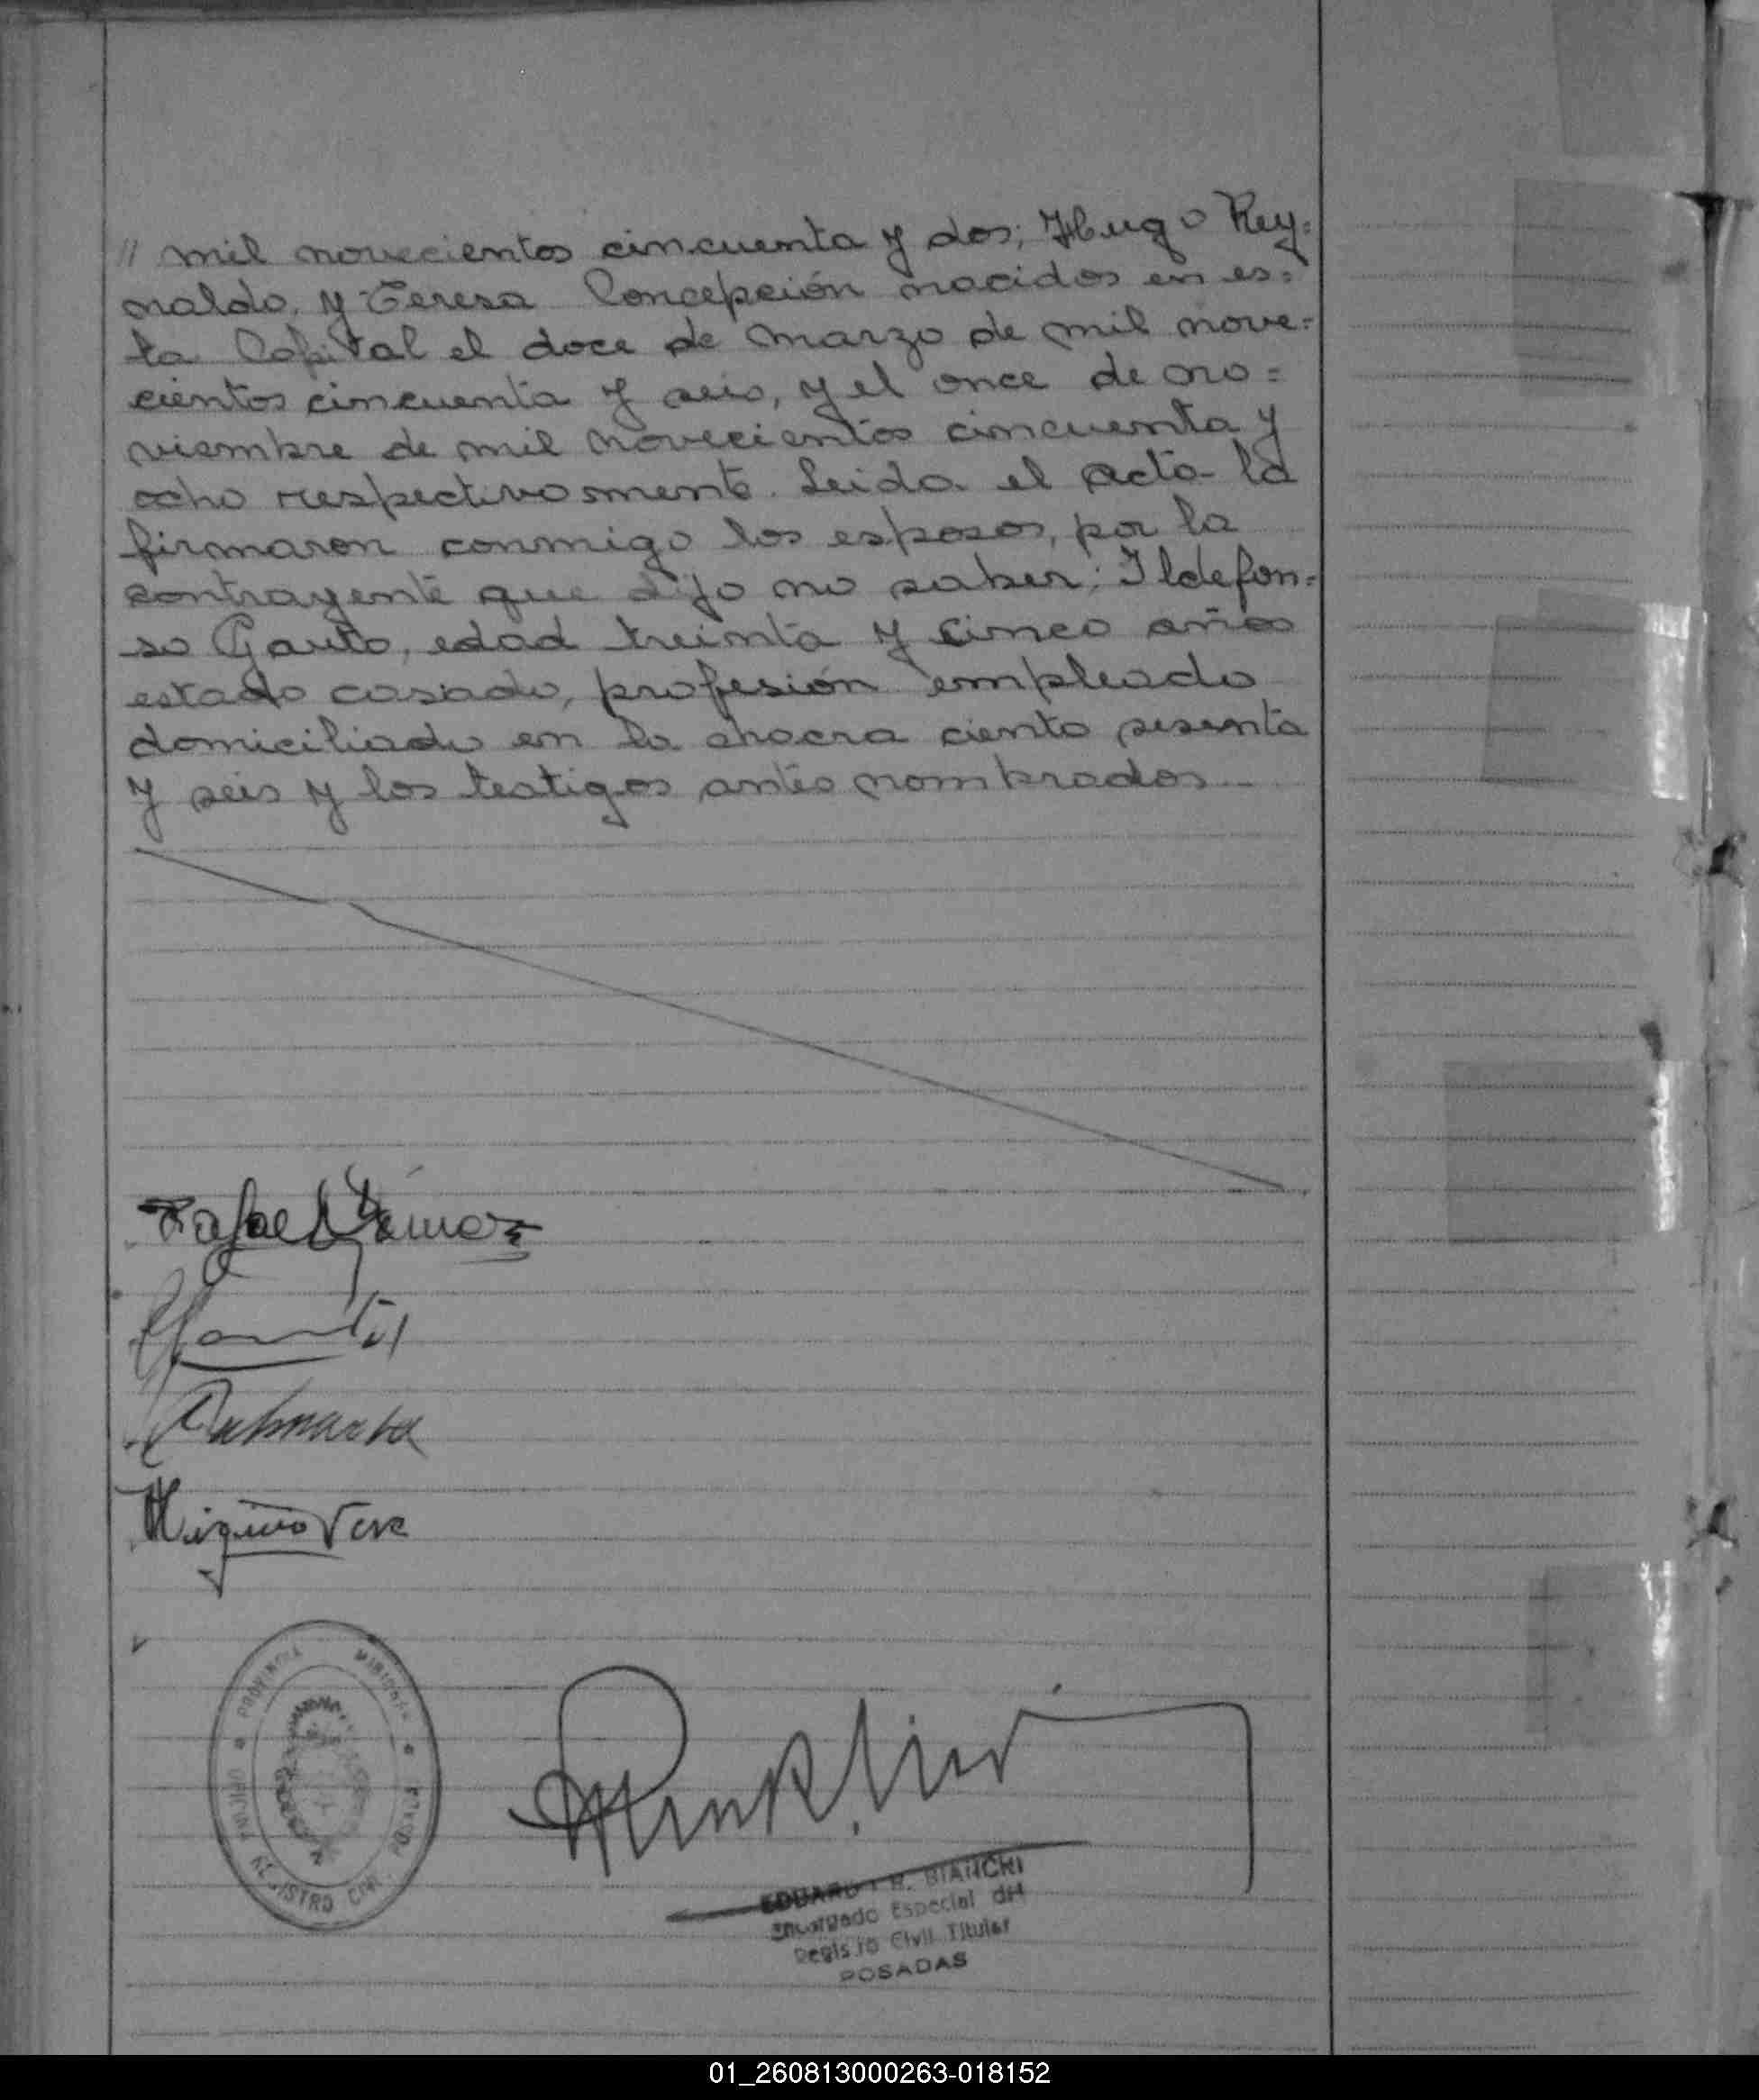 // mil novecientos cincuenta y dos; Hugo Rey=
naldo, y Teresa Concepción nacidos en es=
ta Capital el doce de Marzo de mil nove=
cientos cincuenta y seis, y el once de no=
viembre de mil novecientos cincuenta y
ocho respectivamente. Leida el acta la
firmaron conmigo los esposos, por la
contrayente que dijo no saber; Ildefon=
so Gauto, edad treinta y cinco años
estado casado, profesión empleado
domiciliado en la chacra ciento sesenta
y seis y los testigos antes nombrados
Rafael
Higinio Vera
PROVINCIA MISIONES
OFICINA REGISTRO CIVIL POSADAS
EDUARDO R. BIANCHI
Encargado Especial del
Registro Civil Titular
POSADAS
01_260813000263-018152